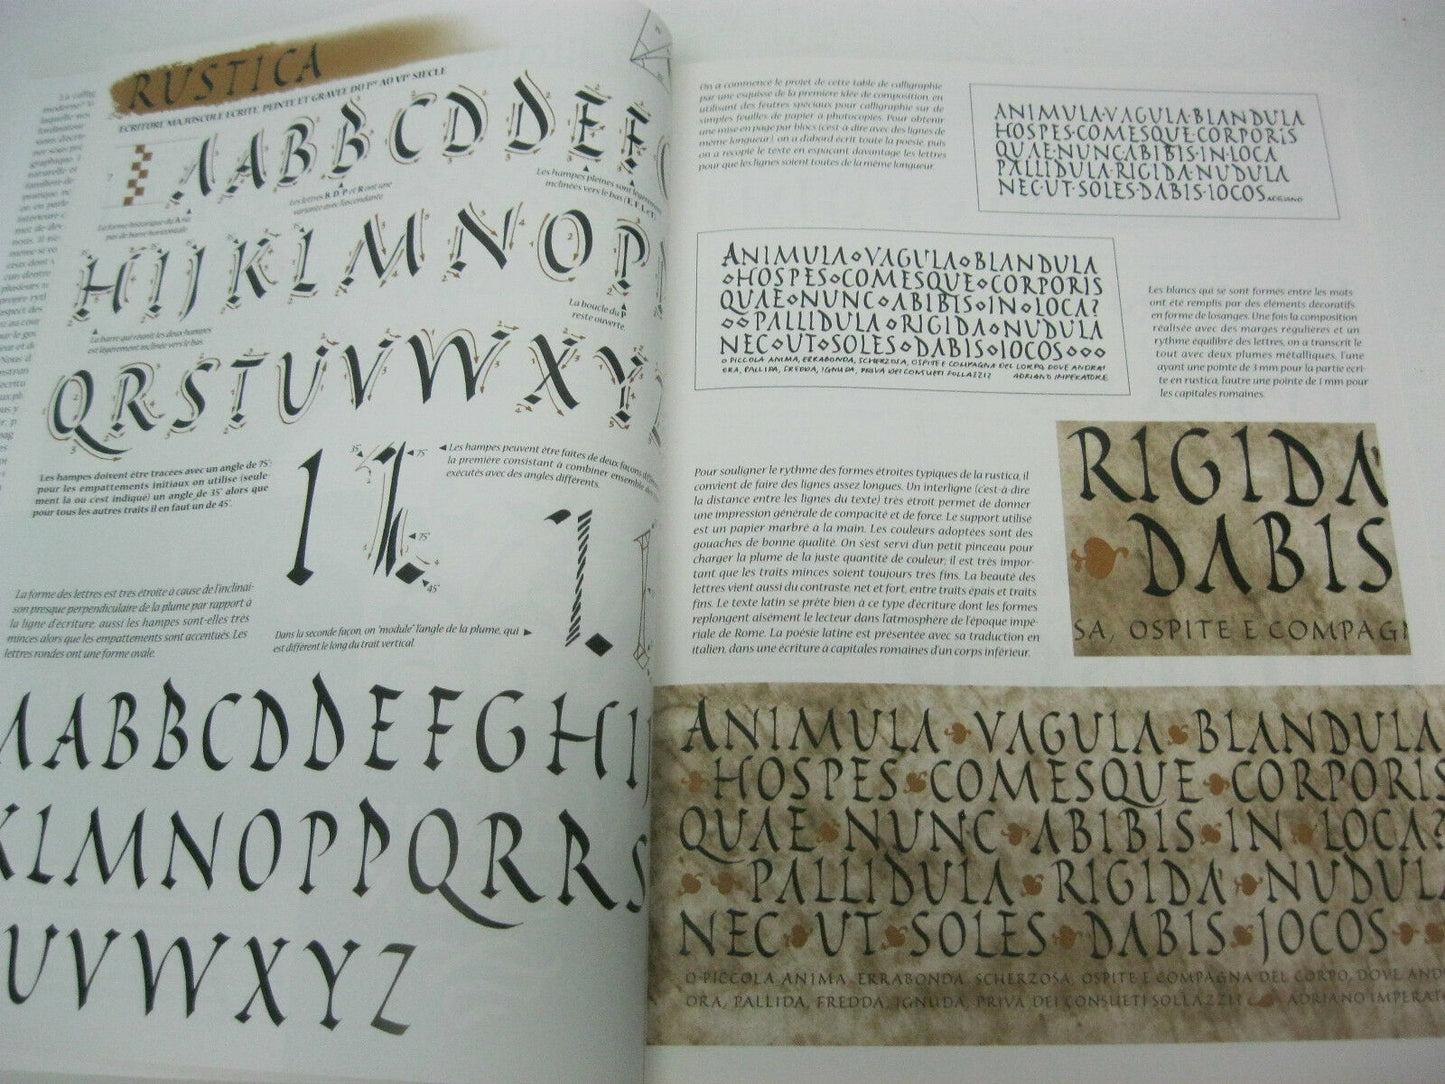 RUSTICA
ECRITURE MAJUSCULE ECRITE, PEINTE ET GRAVEE DU Ier AU VIe SIECLE
A A B B C D D E F
?
Les lettres B, D, P et R ont une
variante avec l'ascendante
Les hampes pleines sont légèrement
inclinées vers le bas (E, F, L et T)
La forme historique du A n'a
pas de barre horizontale
H I J K L M N O P
La barre qui réunit les deux hampes
est légèrement inclinée vers le bas
La boucle du P
reste ouverte.
Q R S T U V W X Y
Les hampes doivent être tracées avec un angle de 75°;
pour les empattements initiaux on utilise (seule
ment là où c'est indiqué) un angle de 35° alors que
pour tous les autres traits il en faut un de 45°.
35°
75°
75°
45°
Les hampes peuvent être faites de deux façons
la première consistant à combiner ensemble
exécutés avec des angles différents.
La forme des lettres est très étroite à cause de l'inclinai-
son presque perpendiculaire de la plume par rapport à
la ligne d'écriture; aussi les hampes sont-elles très
minces alors que les empattements sont accentués. Les
lettres rondes ont une forme ovale.
Dans la seconde façon, on "module" l'angle de la plume, qui
est différent le long du trait vertical.
A A B B C D D E F G H I J
K L M N O P P Q R R S
U V W X Y Z
On a commencé le projet de cette table de calligraphie
par une esquisse de la première idée de composition, en
utilisant des feutres spéciaux pour calligraphie sur de
simples feuilles de papier à photocopies. Pour obtenir
une mise en page par blocs (c'est-à-dire avec des lignes de
même longueur), on a d'abord écrit toute la poésie, puis
on a recopié le texte en espaçant davantage les lettres
pour que les lignes soient toutes de la même longueur.
ANIMULA·VAGULA·BLANDULA
HOSPES·COMESQUE·CORPORIS
QUAE·NUNC·ABIBIS·IN·LOCA
PALLIDULA·RIGIDA·NUDULA
NEC·UT·SOLES·DABIS·IOCOS ADRIANO
ANIMULA◇VAGULA◇BLANDULA
◇HOSPES◇COMESQUE◇CORPORIS
QUAE◇NUNC◇ABIBIS◇IN◇LOCA?
◇◇PALLIDULA◇RIGIDA◇NUDULA
NEC◇UT◇SOLES◇DABIS◇IOCOS◇◇◇
O PICCOLA ANIMA, ERRABONDA, SCHERZOSA, OSPITE E COMPAGNA DEL CORPO, DOVE ANDRAI
ORA, PALLIDA, FREDDA, IGNUDA, PRIVA DEI CONSUETI SOLLAZZI? ADRIANO IMPERATORE
Les blancs qui se sont formés entre les mots
ont été remplis par des éléments décoratifs
en forme de losanges. Une fois la composition
réalisée avec des marges régulières et un
rythme équilibré des lettres, on a transcrit le
tout avec deux plumes métalliques, l'une
ayant une pointe de 3 mm pour la partie écri-
te en rustica, l'autre une pointe de 1 mm pour
les capitales romaines.
Pour souligner le rythme des formes étroites typiques de la rustica, il
convient de faire des lignes assez longues. Un interligne (c'est-à-dire
la distance entre les lignes du texte) très étroit permet de donner
une impression générale de compacité et de force. Le support utilisé
est un papier marbré à la main. Les couleurs adoptées sont des
gouaches de bonne qualité. On s'est servi d'un petit pinceau pour
charger la plume de la juste quantité de couleur; il est très impor-
tant que les traits minces soient toujours très fins. La beauté des
lettres vient aussi du contraste, net et fort, entre traits épais et traits
fins. Le texte latin se prête bien à ce type d'écriture dont les formes
replongent aisément le lecteur dans l'atmosphère de l'époque impé-
riale de Rome. La poésie latine est présentée avec sa traduction en
italien, dans une écriture à capitales romaines d'un corps inférieur.
RIGIDA
DABIS
SA, OSPITE E COMPAGN
ANIMULA VAGULA BLANDULA
HOSPES COMESQUE CORPORIS
QUAE NUNC ABIBIS IN LOCA?
PALLIDULA RIGIDA NUDULA
NEC UT SOLES DABIS JOCOS
O PICCOLA ANIMA, ERRABONDA, SCHERZOSA, OSPITE E COMPAGNA DEL CORPO, DOVE AND
ORA, PALLIDA, FREDDA, IGNUDA, PRIVA DEI CONSUETI SOLLAZZI? ADRIANO IMPERAT